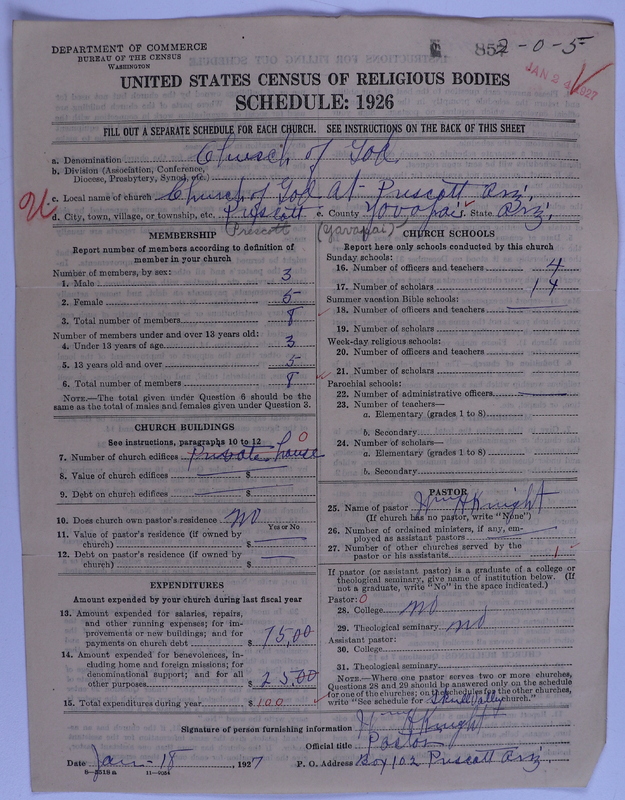 DEPARTMENT OF COMMERCE
BUREAU OF THE CENSUS
WASHINGTON
852-0-5
JAN 24 1927
UNITED STATES CENSUS OF RELIGIOUS BODIES
SCHEDULE: 1926
FILL OUT A SEPARATE SCHEDULE FOR EACH CHURCH. SEE INSTRUCTIONS ON THE BACK OF THIS SHEET
a. Denomination Church of God
b. Division (Association, Conference, Diocese, Presbytery, Synod, etc.)
c. Local name of church Church of God At Prescott Ariz,
d. City, town, village, or township, etc. Prescott e. County Yovapai State Ariz,
Prescott (Yavapai)
MEMBERSHIP
Report number of members according to definition of member in your church
Number of members, by sex:
1. Male 3
2. Female 5
3. Total number of members 8
Number of members under and over 13 years old:
4. Under 13 years of age 3
5. 13 years old and over 5
6. Total number of members 8
NOTE.—The total given under Question 6 should be the same as the total of males and females given under Question 3.
CHURCH BUILDINGS
See instructions, paragraphs 10 to 12
7. Number of church edifices Private house 0
8. Value of church edifices $
9. Debt on church edifices $
10. Does church own pastor's residence no
Yes or No
11. Value of pastor's residence (if owned by church) $
12. Debt on pastor's residence (if owned by church) $
EXPENDITURES
Amount expended by your church during last fiscal year
13. Amount expended for salaries, repairs, and other running expenses; for improvements or new buildings; and for payments on church debt $ 75,00
14. Amount expended for benevolences, including home and foreign missions; for denominational support; and for all other purposes $ 25 00
15. Total expenditures during year $ 100
CHURCH SCHOOLS
Report here only schools conducted by this church
Sunday schools:
16. Number of officers and teachers 4
17. Number of scholars 14
Summer vacation Bible schools:
18. Number of officers and teachers
19. Number of scholars
Week-day religious schools:
20. Number of officers and teachers
21. Number of scholars
Parochial schools:
22. Number of administrative officers
23. Number of teachers—
a. Elementary (grades 1 to 8)
b. Secondary
24. Number of scholars—
a. Elementary (grades 1 to 8)
b. Secondary
PASTOR
25. Name of pastor Wm H Knight
(If church has no pastor, write "None")
26. Number of ordained ministers, if any, employed as assistant pastors
27. Number of other churches served by the pastor or his assistants 1
If pastor (or assistant pastor) is a graduate of a college or theological seminary, give name of institution below. (If not a graduate, write "No" in the space indicated.)
Pastor: 0
28. College no
29. Theological seminary no
Assistant pastor:
30. College
31. Theological seminary
NOTE.—Where one pastor serves two or more churches, Questions 28 and 29 should be answered only on the schedule for one of the churches; on the schedules for the other churches, write "See schedule for Skull Valley church."
Signature of person furnishing information Wm H Knight
Official title Pastor
Date Jan-18, 1927 P. O. Address Box 102 Prescott Ariz,
8-5518a 11-9054